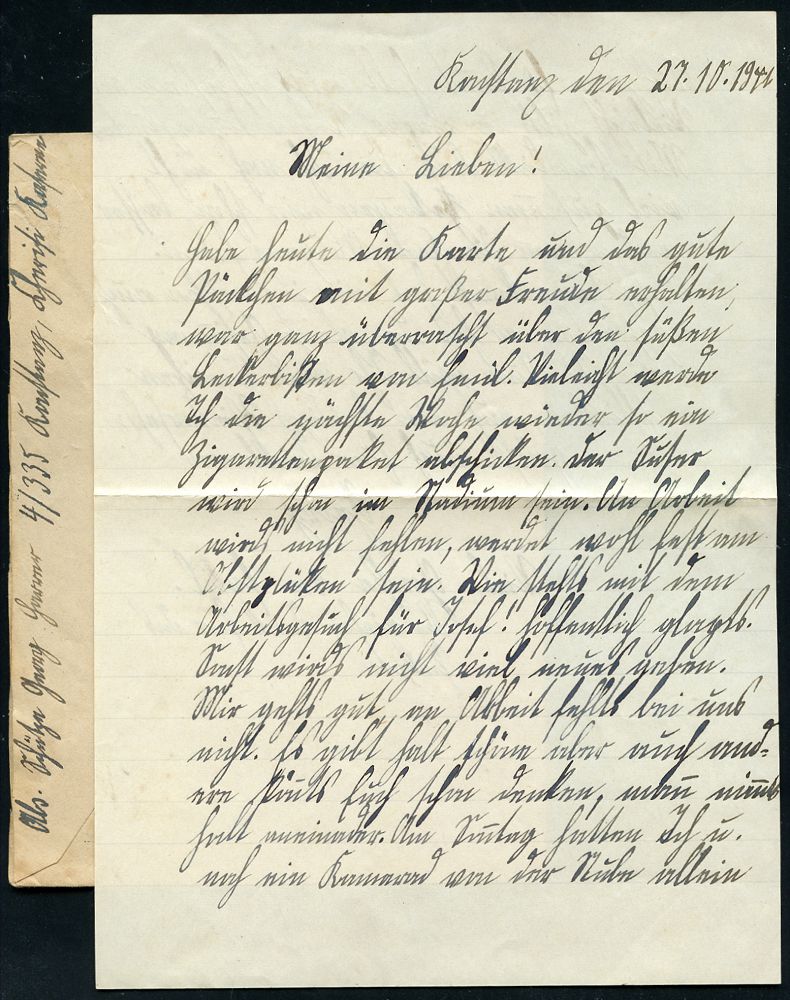 Konstanz den 27.10.1941
Meine Lieben!
Habe heute die Karte und das gute
Päckchen mit großer Freude erhalten,
war ganz überrascht über den süßen
Leckerbißen von Emil. Vieleicht werde
Ich die nächste Woche wieder so ein
Zigarettenpaket abschicken. Der Suser
wird schon im Stadium sein. An Arbeit
wirds nicht fehlen, werdet wohl fest am
Obstplüken sein. Wie stehts mit dem
Arbeitsgesuch für Josef! Hoffentlich glapts.
Sonst wirds nicht viel neues geben.
Mir gehts gut, an Arbeit fehlts bei uns
nicht. Es gibt halt schöne aber auch and=
ere könts Euch schon denken, mann nimts
halt aneinader. Am Sontag hatten Ich u.
noch ein Kamerad von der Stube allein
Abs. Schütze Georg 4/335 Konstanz, Kaserne